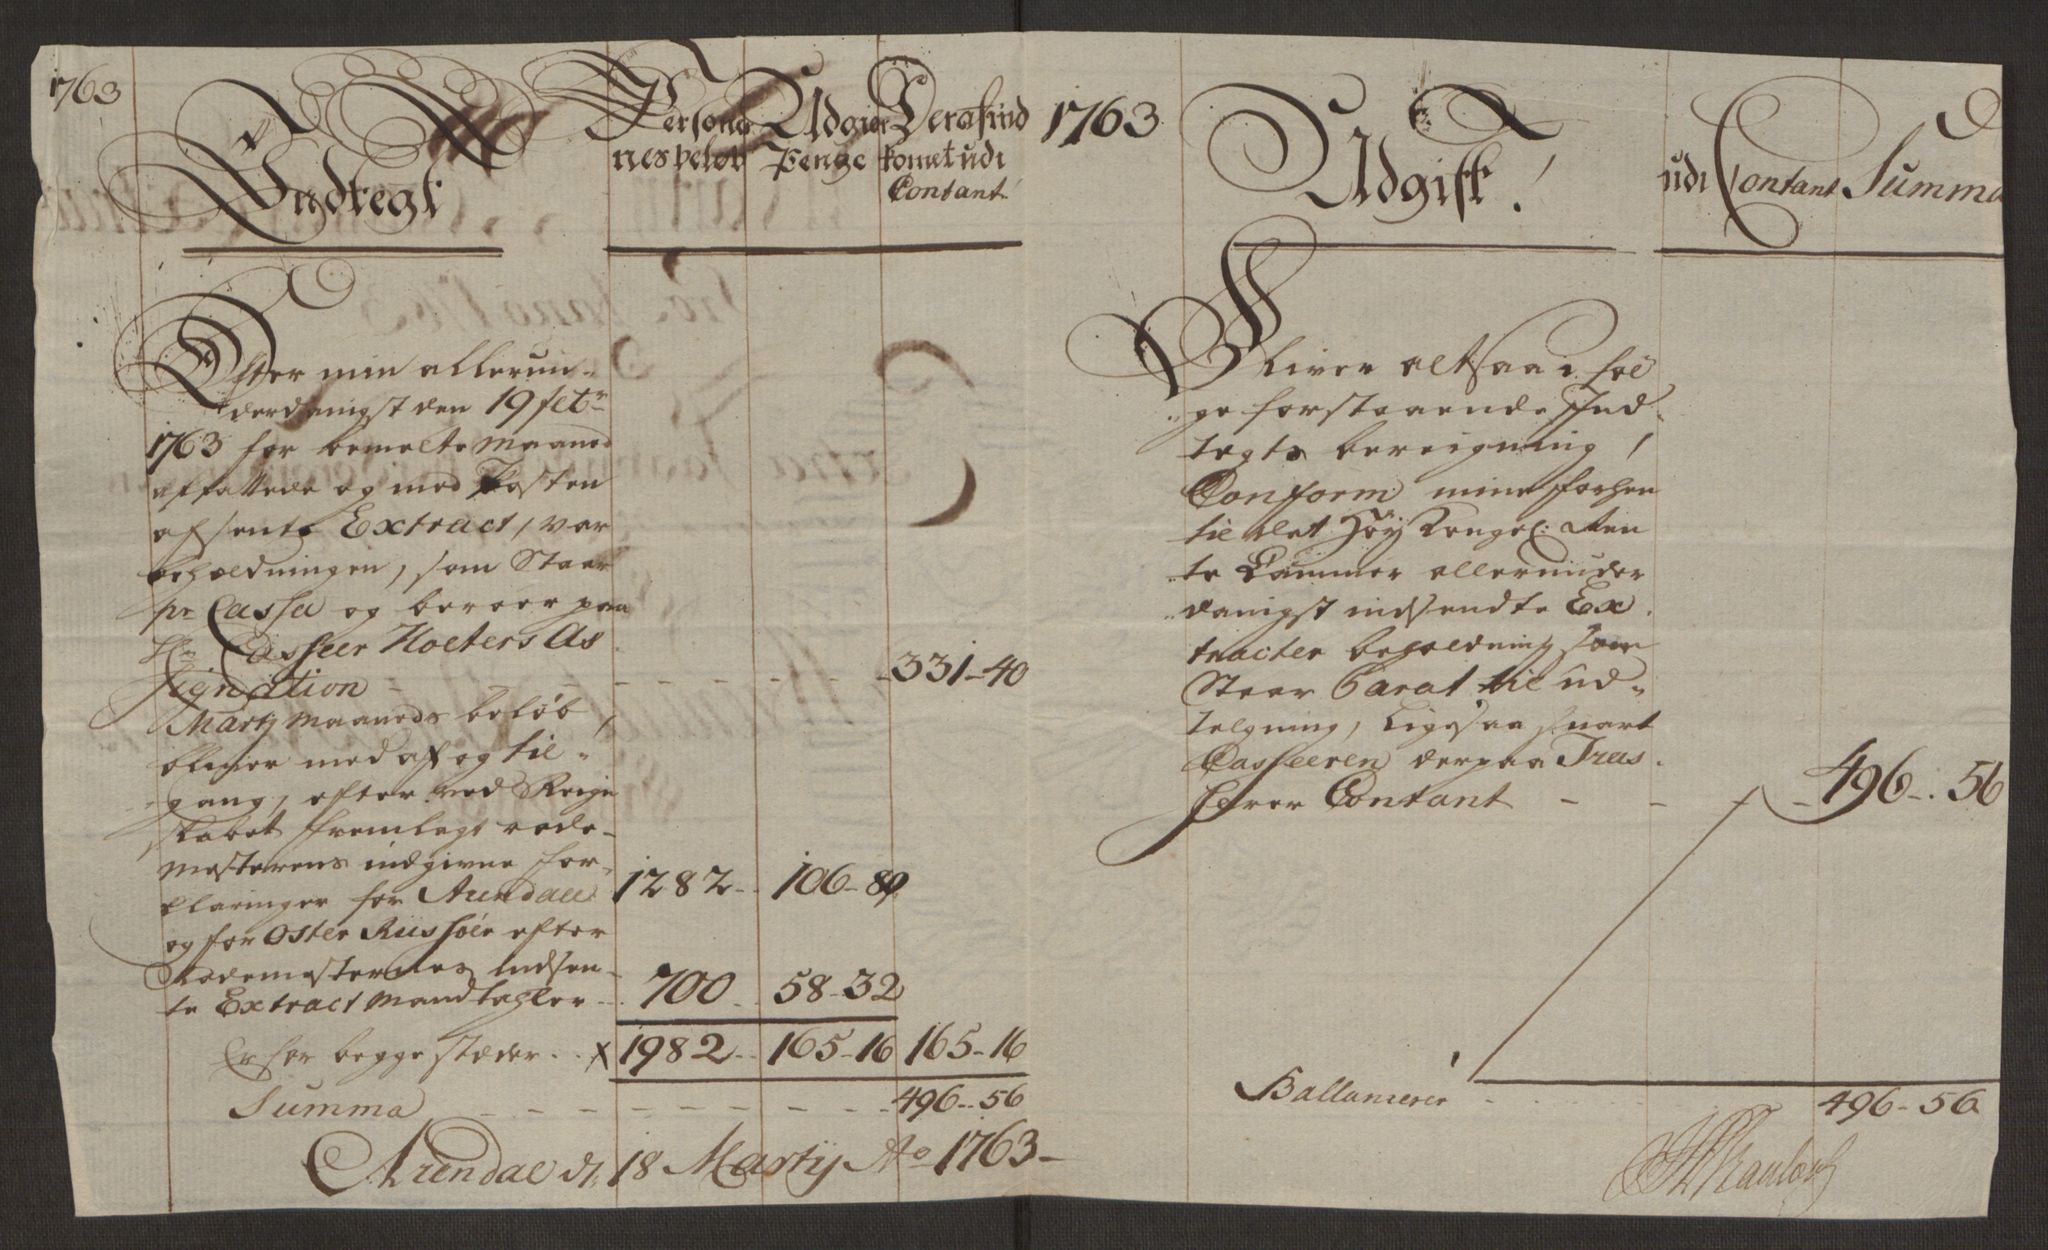 1763
Indtegt
Personer Udgier Deraf ind
nes beløb Penge komet udi
Contant
Efter min allerun-
derdanigst den 19 febr
1763 for bemelte Maaned
affattede og med Posten
afsente Extract, var
beholdningen, som Staar
pr Cassa og beroer paa
Hr Casseer Holters As
signation - - - - - - 331-40
Martj Maaneds beløb,
bliver med af og til-
gang, efter ved Regn
skabet fremlagt rode-
mesterens indgivne for-
klaringer for Arendall 1282 - 106-80
og for Oster Riisøer efter
Rodemesternes indsen-
te Extract Mandtagler - 700 - 58-32
Er for begge stæder - 1982 - 165-16 165-16
Summa - - - - - - 496-56
Arendal d. 18 Martij Ao 1763-
1763
Udgift!
udi Contant Summa
Bliver altsaa i føl
ge forstaaende Ind-
tegts beregning,
Conform mine forhen
til det Høy Kongel: Ren
te Cammer allerunder
danigst indsendte Ex
tracter beholdning som
Staar Parat til ud-
telgning, Ligesaa snart
Casseeren derpaa Tras
herer Contant - - - 496-56
Ballancerer - - - 496-56